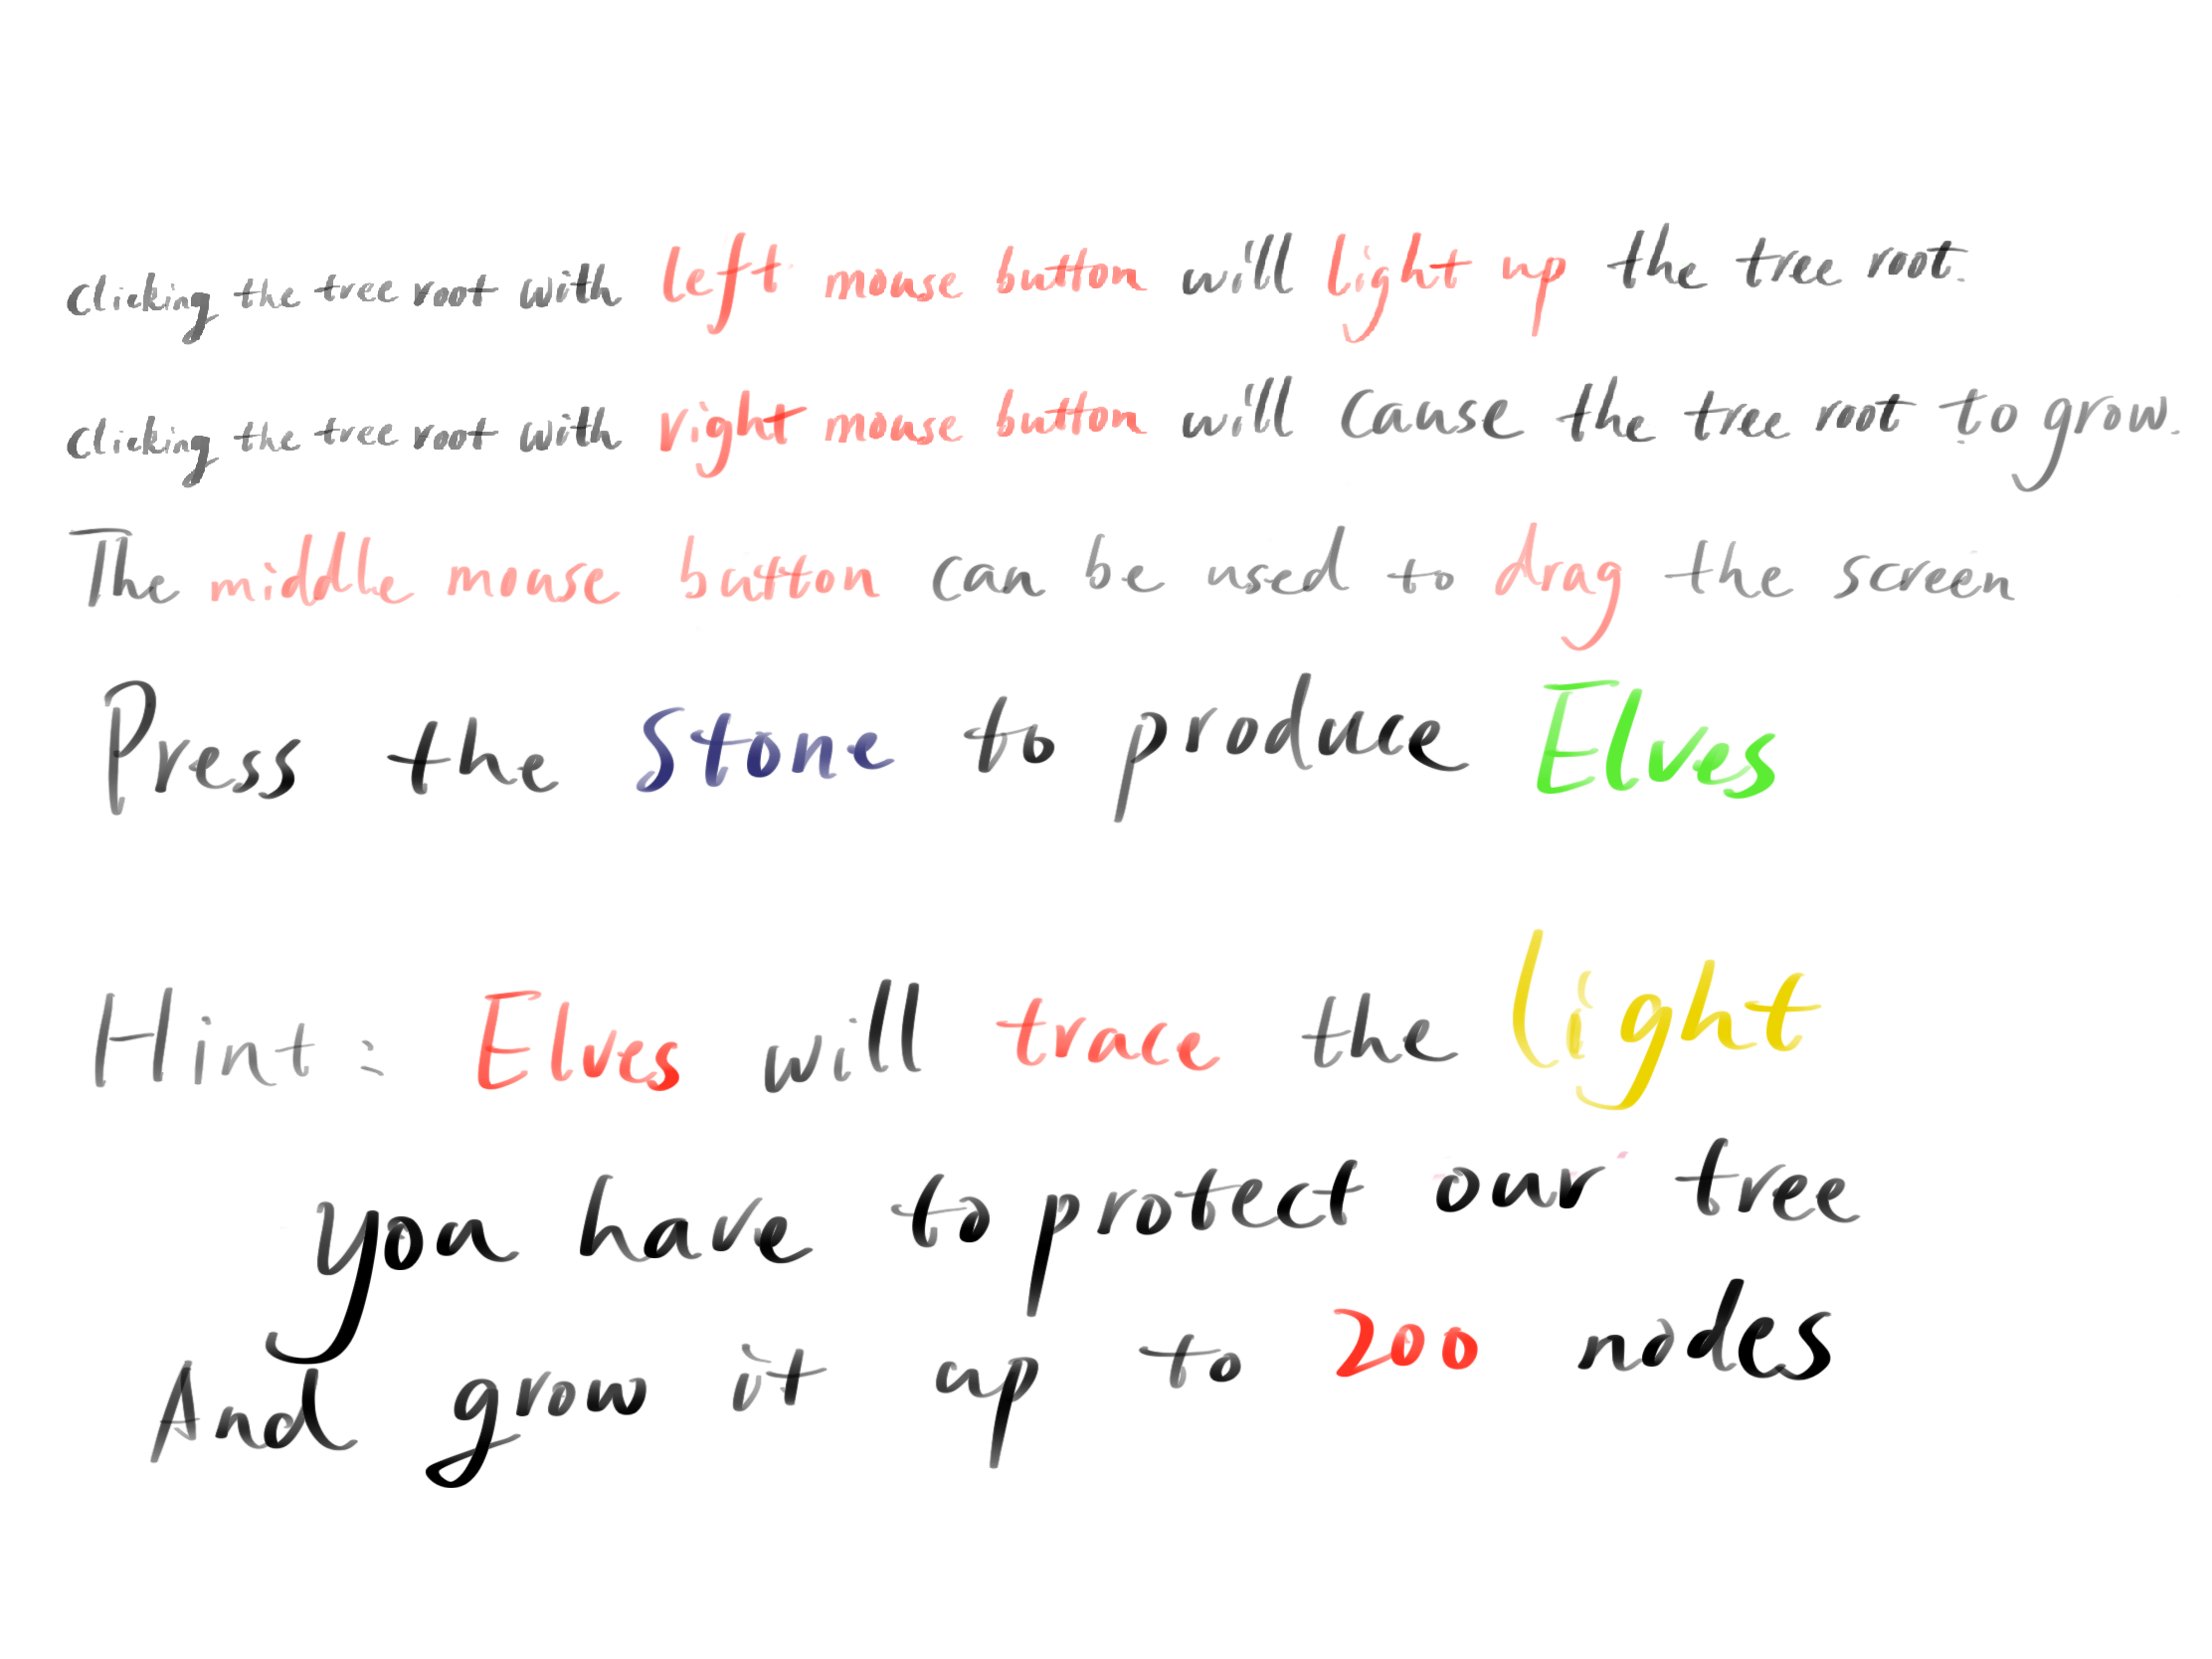 clicking the tree root with left mouse button will light up the tree root.
clicking the tree root with right mouse button will cause the tree root to grow.
The middle mouse button can be used to drag the screen
Press the stone to produce Elves
Hint: Elves will trace the light
you have to protect our tree
And grow it up to 200 nodes